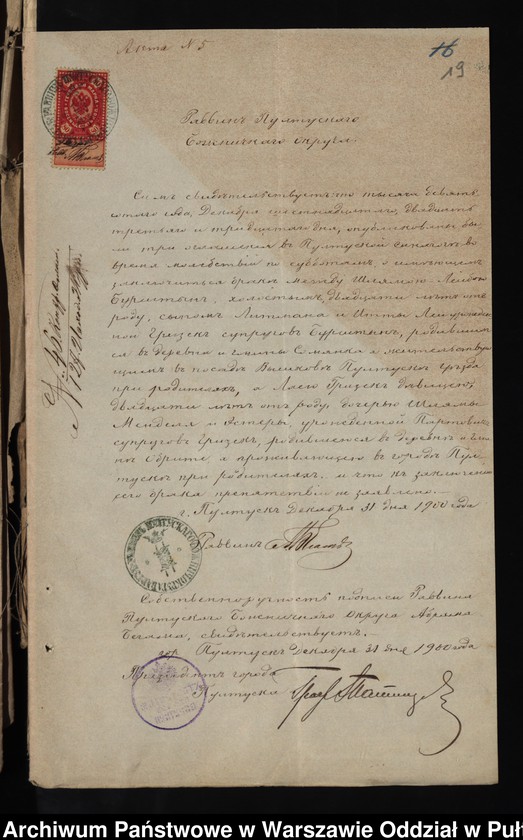 Акта N 5
16
19
Раввинъ Пултускаго
Божничнаго Округа.
Симъ свидѣтельствуетъ что тысяча девять
сотаго года, Декабря шестнадцатаго, двадцать
третьяго и тридцатаго дня, опубликованы бы-
ли три оглашенія въ Пултуской синагогѣ во
время молебствій по субботамъ, о имѣющемъ
заключиться бракѣ между Шлямою-Лейбою
Бурштынъ, холостымъ, двадцати лѣтъ отъ
роду, сыномъ Литмана и Итты
Гризекъ супруговъ Бурштынъ, родившим-
ся въ деревнѣ и гминѣ Сомянка и жительствую-
щимъ въ посадѣ Вышковъ Пултускаго уѣзда
при родителяхъ, а Ласею Гризекъ дѣвицею,
двадцати лѣтъ отъ роду, дочерью Шлямы
Менделя и Эстеры, урожденной
супруговъ Гризекъ, родившеюся въ деревнѣ и гми-
нѣ Обрите и проживающею въ городѣ Пул-
тускѣ при родителяхъ. и что къ заключенію
сего брака препятствій не заявлено.
г. Пултускъ Декабря 31 дня 1900 года
Раввинъ
Собственноручность подписи Раввина
Пултускаго Божничнаго Округа Абрама
свидѣтельствуетъ.
гор. Пултускъ Декабря 31 дня 1900 года
Президентъ города
Пултуска
Archiwum Państwowe w Warszawie Oddział w Puł